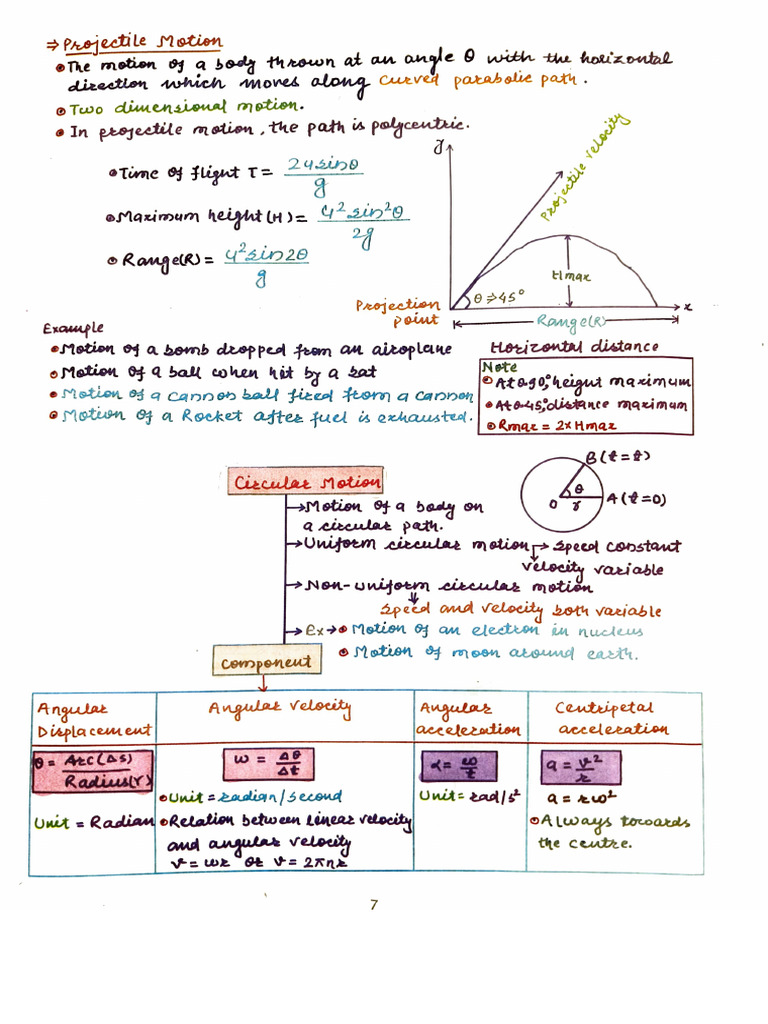 ⇒ Projectile Motion
• The motion of a body thrown at an angle θ with the horizontal
direction which moves along curved parabolic path.
• Two dimensional motion.
• In projectile motion, the path is polycentric.
• Time of flight T = 2usinθ / g
• Maximum height (H) = u² sin²θ / 2g
• Range(R) = u² sin2θ / g
y
Projectile velocity
Hmax
θ ⇒ 45°
x
Projection
point
Range(R)
Horizontal distance
Example
• Motion of a bomb dropped from an airoplane
• Motion of a ball when hit by a bat
• Motion of a cannon ball fired from a cannon
• Motion of a Rocket after fuel is exhausted.
Note
• At θ 90°, height maximum
• At θ 45°, distance maximum
• Rmax = 2x Hmax
Circular Motion
B (t = t)
θ
O r A (t = 0)
→ Motion of a body on
a circular path.
→ Uniform circular motion → Speed constant
velocity variable
→ Non-uniform circular motion
Speed and velocity both variable
→ Ex → • Motion of an electron in nucleus
• Motion of moon around earth.
Component
Angular
Displacement
θ = Arc(Δs) / Radius(r)
Unit = Radian
Angular velocity
w = Δθ / Δt
• Unit = radian/second
• Relation between linear velocity
and angular velocity
v = wr or v = 2πnr
Angular
acceleration
α = w / t
Unit = rad/s²
Centripetal
acceleration
a = v² / r
a = rw²
• Always towards
the centre.
7